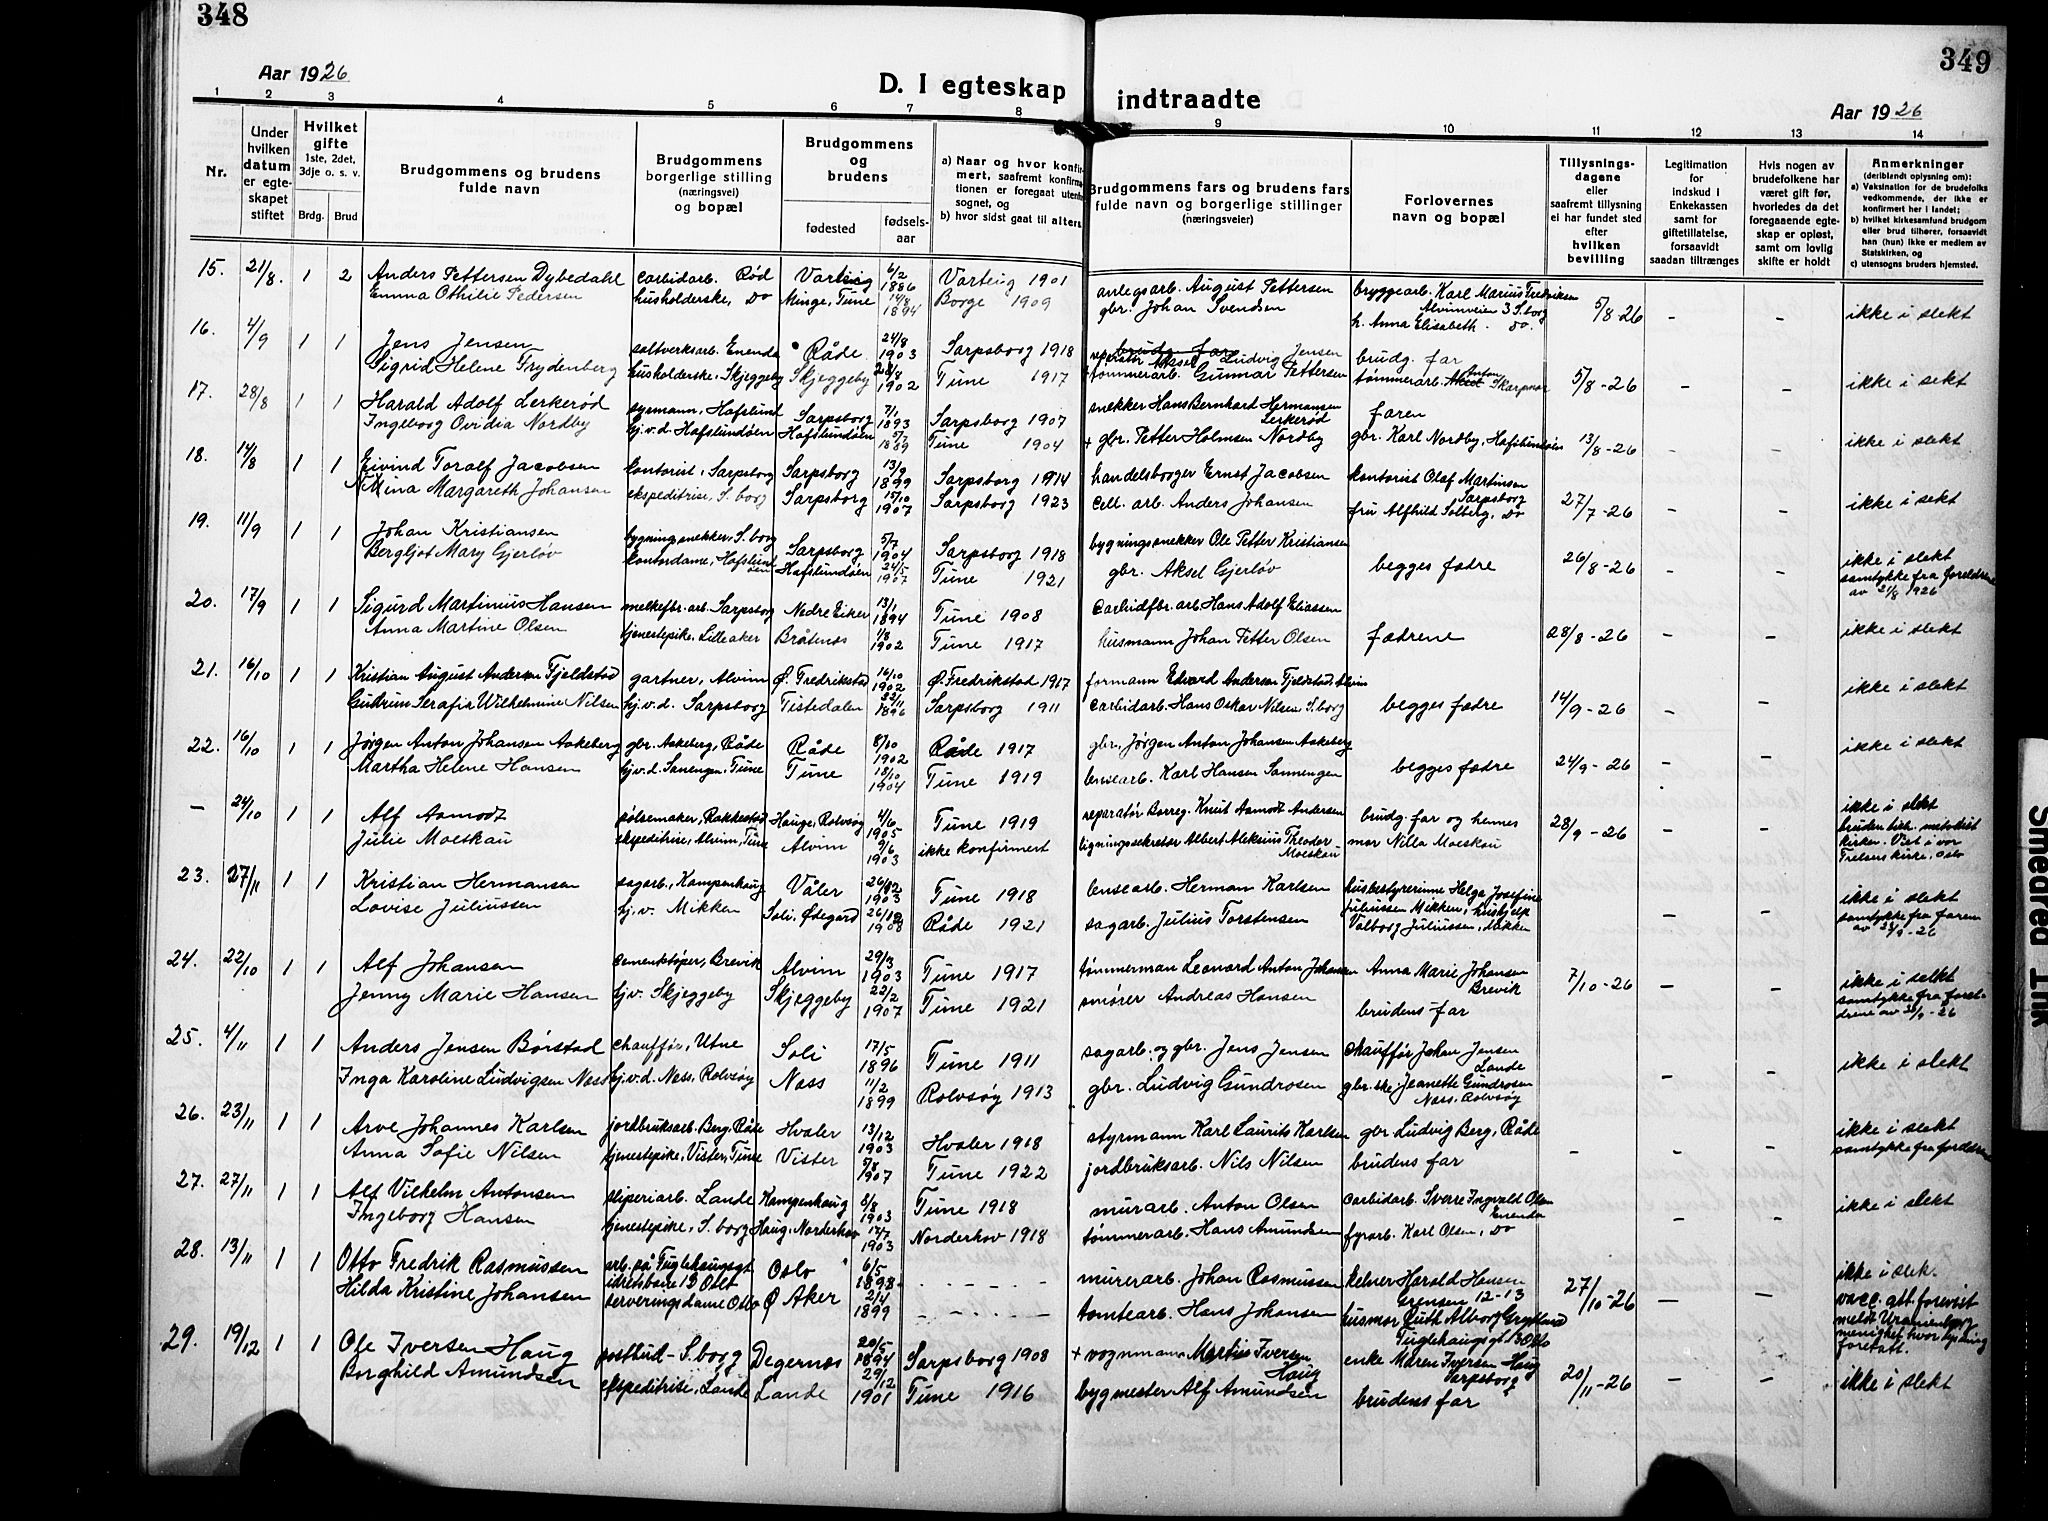 348
349
Aar 1926
D. I egteskap indtraadte
Aar 1926
1 2 3 4 5 6 7 8 9 10 11 12 13 14
Nr.
Under hvilken datum er egteskapet stiftet
Hvilket gifte 1ste, 2det, 3dje o. s. v.
Brdg. Brud
Brudgommens og brudens fulde navn
Brudgommens borgerlige stilling (næringsvei) og bopæl
Brudgommens og brudens
fødested
fødsels-aar
a) Naar og hvor konfirmert, saafremt konfirmationen er foregaat utenfor sognet, og
b) hvor sidst gaat til alters
Brudgommens fars og brudens fars fulde navn og borgerlige stillinger (næringsveier)
Forlovernes navn og bopæl
Tillysnings-dagene eller saafremt tillysning ei har fundet sted efter hvilken bevilling
Legitimation for indskud i Enkekassen samt for giftetillatelse, forsaavidt saadan tiltrænges
Hvis nogen av brudefolkene har været gift før, hvorledes da det foregaaende egteskap er opløst, samt om lovlig skifte er holdt
Anmerkninger (deriblandt oplysning om):
a) Vaksination for de brudefolks vedkommende, der ikke er konfirmert her i landet;
b) hvilket kirkesamfund brudgom eller brud tilhører, forsaavidt han (hun) ikke er medlem av Statskirken, og
c) utensogns bruders hjemsted.
15. 21/8. 1 2 Anders Pettersen Dybedahl carbidarb. Rød Varteig 6/2 1886 Varteig 1901 anlegsarb. August Pettersen bryggearb. Karl Marius Fredriksen Alvimveien 3 S.borg 5/8 26 - - ikke i slekt
Emma Othilie Pedersen husholderske, Do Minge, Tune 14/8 1894 Borge 1909 gbr. Johan Svendsen h. Anna Elisabeth. do.
16. 4/9 1 1 Jens Jensen saltverksarb. Enenda Råde 24/8 1903 Sarpsborg 1918 brudg. far reparatør Aksel Ludvig Jensen brudg. far 5/8-26 - - ikke i sekt
Sigrid Helene Frydenberg husholderske, Skjeggeby Skjeggeby 28/8 1902 Tune 1917 + tømmerarb. Gunnar Pettersen tømmerarb. Anton
17. 28/8 1 1 Harald Adolf Lerkerød sysmann, Hafslund Sarpsborg 7/1 1893 Sarpsborg 1907 snekker Hans Bernhard Hermansen Lerkerød faren 13/8-26 - - ikke i slekt
Ingeborg Ovidia Nordby hj.v.d. Hafslundøen Hafslundøen 5/7 1889 Tune 1904 + gbr. Petter Holmsen Nordby gbr. Karl Nordby, Hafslundøen
18. 14/8 1 1 Eivind Toralf Jacobsen kontorist, Sarpsborg Sarpsborg 13/9 1899 Sarpsborg 1914 handelsborger Ernst Jacobsen kontorist Olaf Martinsen Sarpsborg 27/7-26 - - ikke i sekt
Mina Margareth Johansen ekspeditrise, S.borg Sarpsborg 15/10 1907 Sarpsborg 1923 cell. arb. Anders Johansen fru Alfhild Solberg, Do
19. 11/9 1 1 Johan Kristiansen bygningssnekker, S.borg Sarpsborg 5/7 1904 Sarpsborg 1918 bygningssnekker Ole Petter Kristiansen begges fædre 26/8-26 - - ikke i slekt
Bergljot Mary Gjerløv kontordame, Hafslundøen Hafslundøen 24/5 1907 Tune 1921 gbr. Aksel Gjerløv samtykke fra foreldrene av 21/8 1926
20. 17/9 1 1 Sigurd Martinius Hansen melkefbr. arb. Sarpsborg Nedre Eiker 13/1 1894 Tune 1908 carbidfbr. arb Hans Adolf Eliassen fædrene 28/8-26 - - ikke i slekt
Anna Martine Olsen tjenestepike, Lilleaker Bråtenes 1/8 1902 Tune 1917 husmann Johan Petter Olsen
21. 16/10 1 1 Kristian August Andersen Fjeldstad gartner, Alvim Ø. Fredrikstad 16/10 1902 Ø. Fredrikstad 1917 formann Edvard Andersen Fjeldstad, Alvim begges fædre 14/9-26 - - ikke i slekt
Gudrun Serafia Wilhelmine Nilsen hj.v.d. Sarpsborg Tistedalen 22/11 1896 Sarpsborg 1911 carbidarb. Hans Oskar Nilsen S.borg
22. 16/10 1 1 Jørgen Anton Johansen Aakeberg gbr. Aakeberg, Råde Råde 8/10 1902 Råde 1917 gbr. Jørgen Anton Johansen Aakeberg begges fædre 24/9-26 - - ikke i slekt
Martha Helene Hansen hj.v.d. Sannengen, Tune Tune 18/10 1904 Tune 1919 lensearb. Karl Hansen Sannengen
- 24/10 1 1 Alf Aamodt pølsemaker, Rakkestad Hauge, Rolvsøy 4/6 1905 Tune 1919 reparatør Borreg. Knut Aamodt Andersen brudg. far og hennes 28/9-26 - - ikke i slekt
Julie Moeskau ekspeditrise, Alvim, Tune Alvim 9/6 1903 ikke konfirmert ligningssekretær Albert Aleksius Theodor Moeskau mor Nilla Moeskau bruden tilh. metodist kirken. Viet i vor Frelsers kirke, Oslo
23. 27/11 1 1 Kristian Hermansen sagarb., Kampenhaug Våler 26/12 1903 Tune 1918 lensearb. Herman Karlsen husbestyrerinne Helga Josefine Juliussen Mikken, hushjelp - - ikke i slekt
Lovise Juliussen hj.v. Mikken Soli, Ødegard 26/12 1903 Råde 1921 sagarb. Julius Torstensen Valborg Juliussen, Mikken samtykke fra faren
24. 22/10 1 1 Alf Johansen cementstøper, Brevik Alvim 29/3 1903 Tune 1917 tømmerman Leonard Anton Johansen Anna Marie Johansen Brevik 7/10-26 - - ikke i selkt
Jenny Marie Hansen hj.v. Skjeggeby Skjeggeby 22/2 1907 Tune 1921 smører Andreas Hansen brudens far samtykke fra foreldrene
25. 4/11 1 1 Anders Jensen Børstad chauffør, Utne Soli 17/5 1896 Tune 1911 sagarb. og gbr. Jens Jensen chauffør Johan Jensen Lande - - ikke i slekt
Inga Karoline Ludvigsen Næss hj.v.d. Næss, Rolvsøy Næss 11/2 1899 Rolvsøy 1913 gbr. Ludvig Gundrosen gbr.ske Jeanette Gundrosen Næss, Rolvsøy
26. 23/11 1 1 Arve Johannes Karlsen jordbruksarb. Berg, Råde Hvaler 13/12 1903 Hvaler 1918 styrmann Karl Laurits Karlsen gbr Ludvig Berg, Råde - - - ikke i slekt
Anna Sofie Nilsen tjenestepike, Vister, Tune Vister 5/8 1907 Tune 1922 jordbruksarb. Nils Nilsen brudens far samtykke fra foreldrene
27. 27/11 1 1 Alf Vilhelm Antonsen sliperiarb. Lande Kampenhaug 8/8 1903 Tune 1918 murarb. Anton Olsen carbidarb. Sverre Ingvald Olsen Enenda - - ikke i slekt
Ingeborg Hansen tjenestepike, S.borg Haug, Norderhov 17/7 1903 Norderhov 1918 tømmerarb. Hans Amundsen fyrarb. Karl Olsen, Do
28. 13/11 1 1 Otto Fredrik Rasmussen arb. på Fuglehaugsgt idretsbane 13 Oslo Oslo 6/5 1898 - - - - murerarb. Johan Rasmussen kelner Harald Hansen Grensen 12-13 27/10-26 - - ikke i slek.
Hilda Kristine Johansen serveringsdame Oslo Ø Aker 2/4 1899 - - - - tomtearb. Hans Johansen husmor Ruth Alborg Fuglehaugsgt 13 Oslo vacc. att. forevist meldt Uranienborg menighet hvor lysning foretatt.
29. 19/12 1 1 Ole Iversen Haug postbud - S.borg Degernes 20/5 1894 Sarpsborg 1908 + vognmann Martin Iversen Haug enke Maren Iversen Haug Sarpsborg 20/11-26 - - ikke i slekt
Borghild Amundsen ekspeditrise, Lande Lande 29/12 1901 Tune 1916 bygmester Alf Amundsen brudens far
Smedred 1 nk